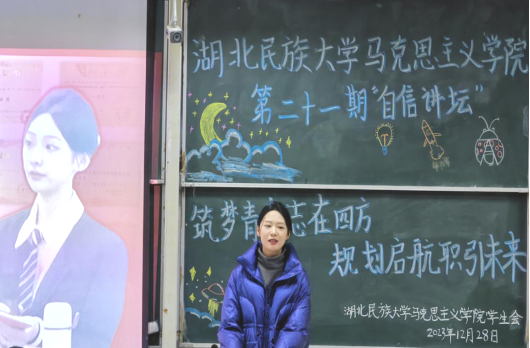 湖北民族大学马克思主义学院
第二十一期"自信讲坛"
筑梦青 志在四方
规划启航职引未来
湖北民族大学马克思主义学院学生会
2023年12月28日